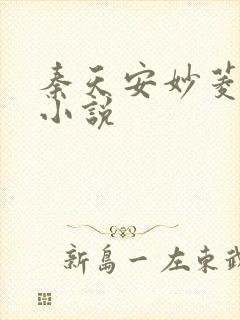 秦天安妙菱
小说
新岛一左東武